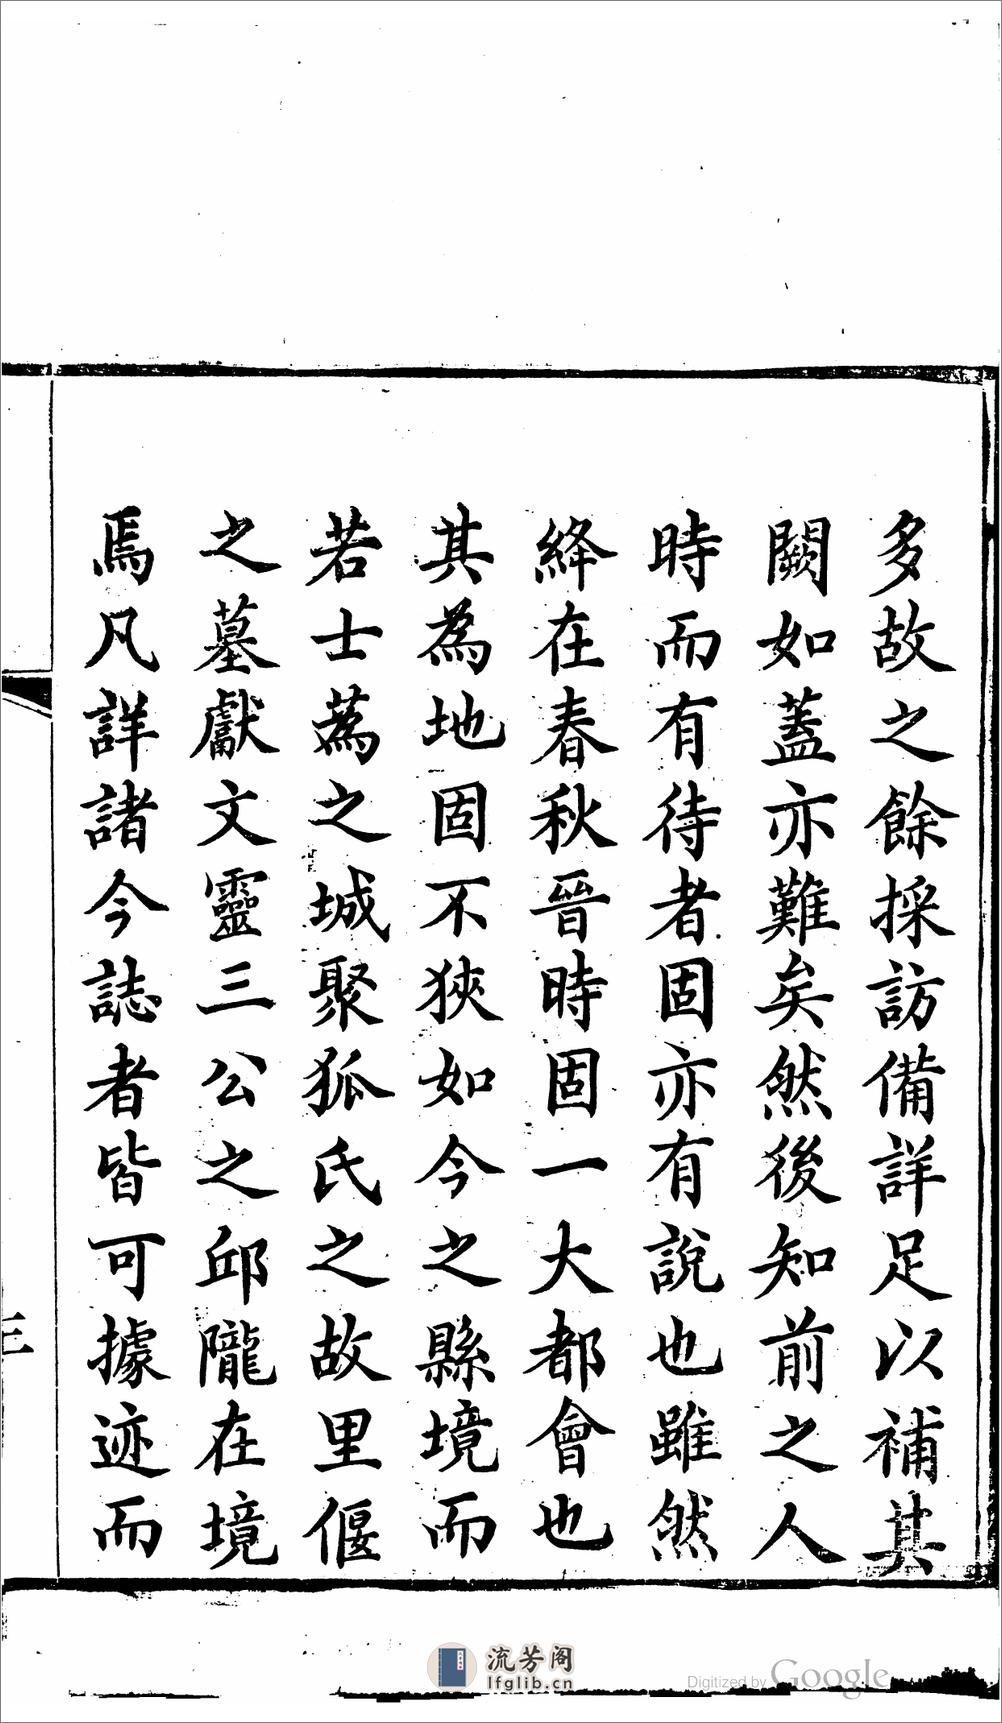 多故之餘採訪備詳足以補其
闕如蓋亦難矣然後知前之人
時而有待者固亦有說也雖然
絳在春秋晉時固一大都會也
其為地固不狹如今之縣境而
若士蔿之城聚狐氏之故里偃
之墓獻文靈三公之邱隴在境
焉凡詳諸今誌者皆可據迹而
三
流芳阁
lfglib.cn
Digitized by Google